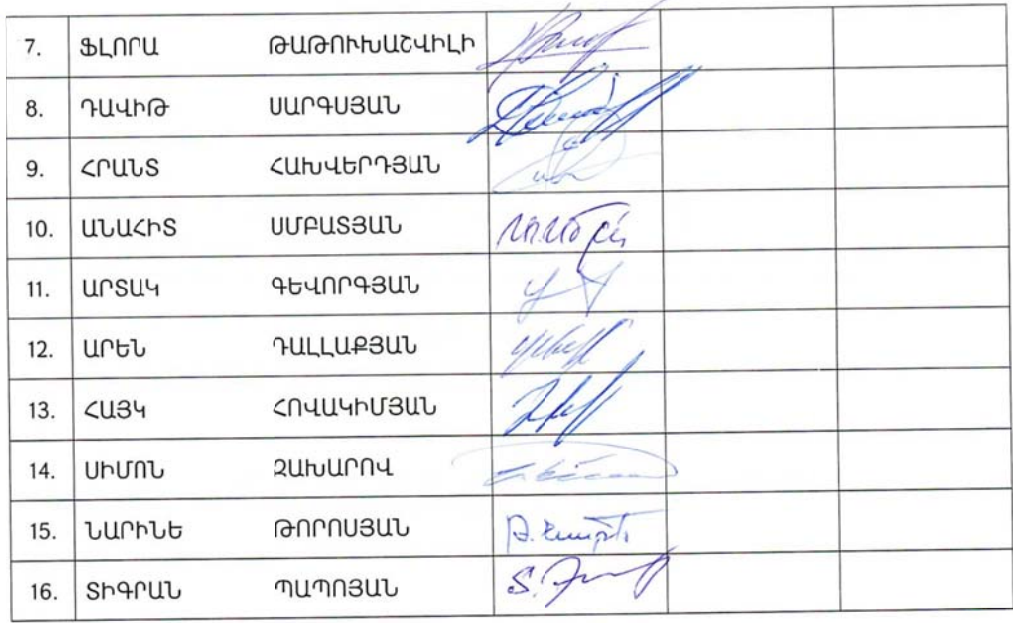 7. ՖԼՈՐԱ ԹԱԹՈՒԽԱՇՎԻԼԻ
8. ԴԱՎԻԹ ՍԱՐԳՍՅԱՆ
9. ՀՐԱՆՏ ՀԱԽՎԵՐԴՅԱՆ
10. ԱՆԱՀԻՏ ՍՄԲԱՏՅԱՆ
11. ԱՐՏԱԿ ԳԵՎՈՐԳՅԱՆ
12. ԱՐԵՆ ԴԱԼԼԱՔՅԱՆ
13. ՀԱՅԿ ՀՈՎԱԿԻՄՅԱՆ
14. ՍԻՄՈՆ ԶԱԽԱՐՈՎ
15. ՆԱՐԻՆԵ ԹՈՐՈՍՅԱՆ
16. ՏԻԳՐԱՆ ՊԱՊՈՅԱՆ